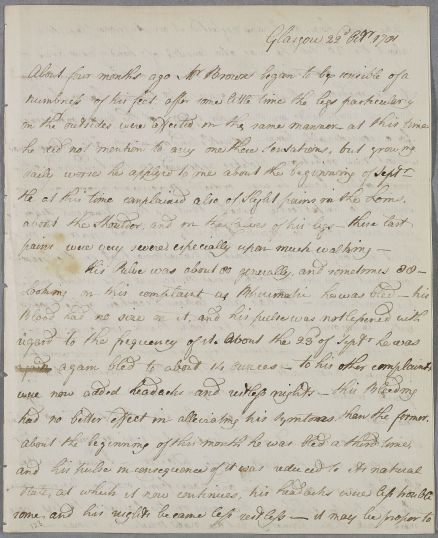 Glasgow 22d Octr 17
About four months ago Mr Brown began to be sensible of a
numbness of his feet, after some little time the legs particularly
on the outsides were affected in the same manner – at this time
he did not mention to any one these Sensations, but growing
worse he applyed to me about the beginning of Septr
he at this time complained also of slight pains in the Loins,
about the and on the of his legs – these last
pains were very severe especially upon much walking –
His Pulse was about 80 generally, and sometimes 88 –
Looking on this complaint as Rheumatic he was bled – his
Blood had no size on it, and his pulse was not lessened with
regard to the frequency of it. About the 23d of Septr he was
again bled to about 14 ounces – to his other complaints
were now added headachs and restless nights – this Bleeding
had no better effect in alleviating his symtoms than the former.
about the beginning of this month he was bled a third time,
and his pulse in consequence of it was reduced to its natural
state, at which it now continues, his headachs were less trouble
some and his nights became less restless – it may be proper to